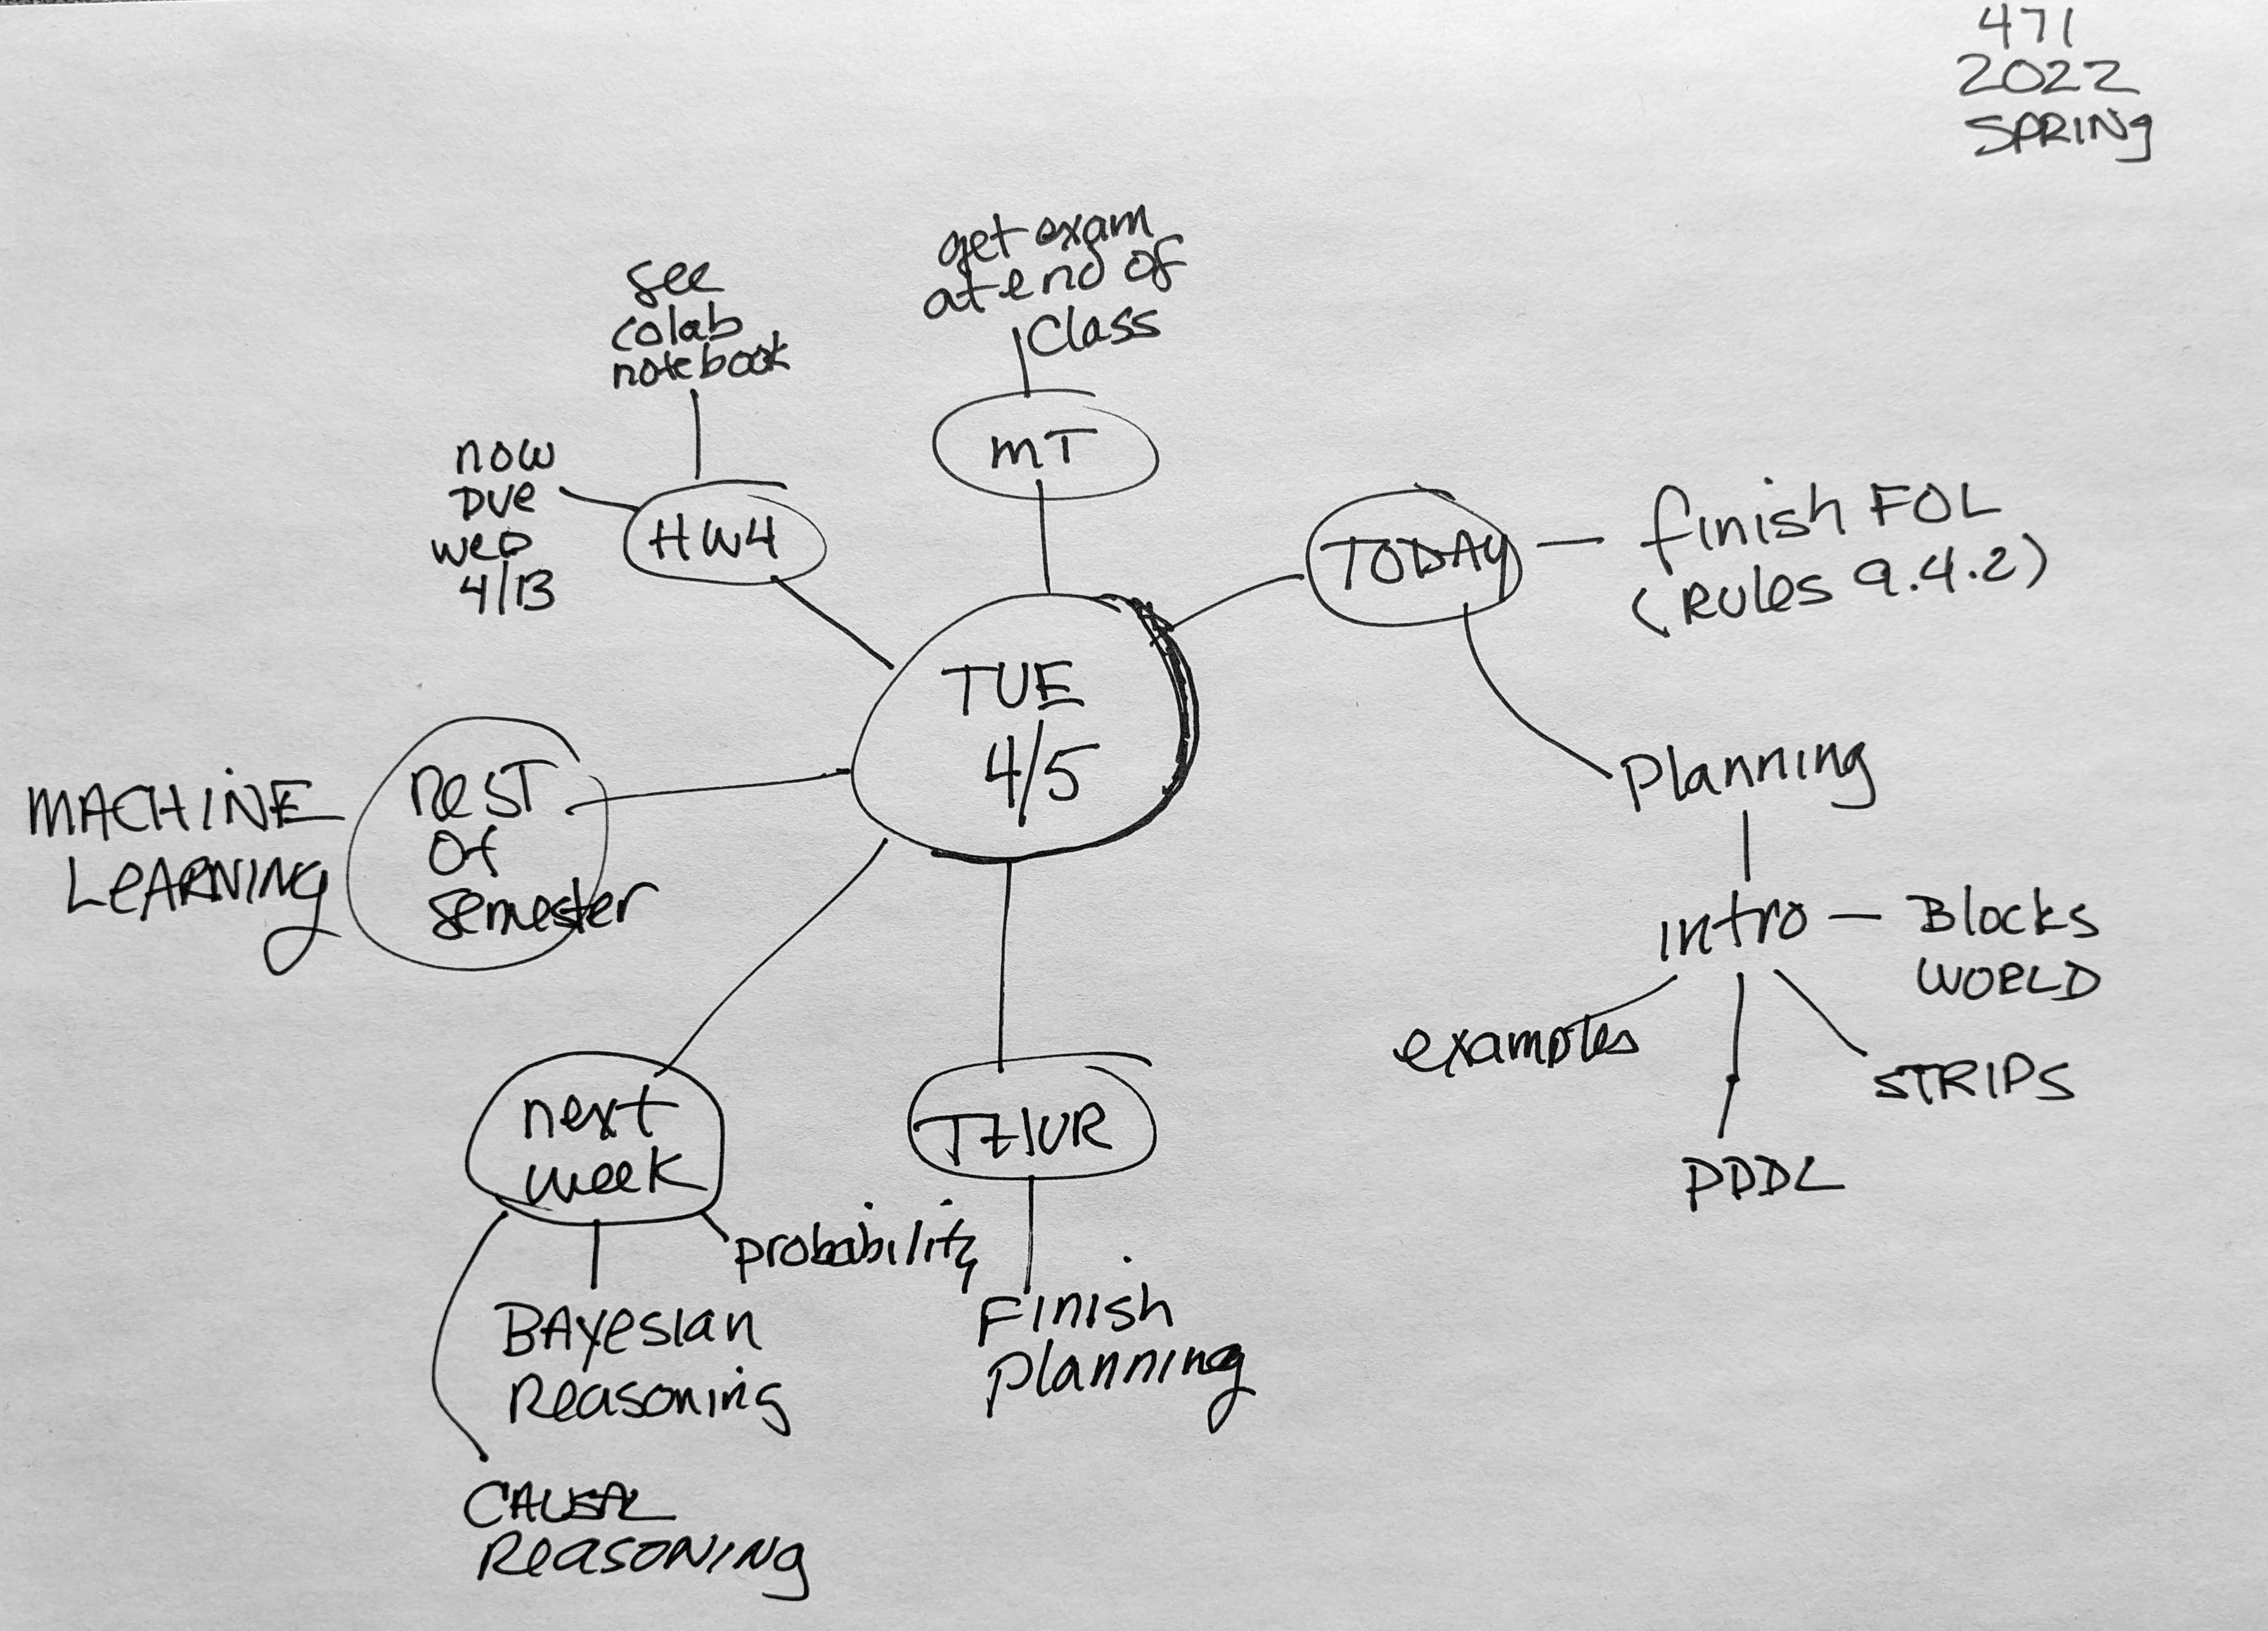 471
2022
SPRING
get exam
at end of
Class
see
colab
notebook
mT
now
DUe
WED
4/13
HW4
TODAY
finish FOL
(RULes 9.4.2)
TUE
4/5
Planning
MACHINE
LeARNING
ReST
Of
semester
intro
Blocks
WORLD
examples
STRIPS
PDDL
next
week
THUR
probability
Finish
planning
BAyesian
Reasoning
CAUSAL
ReasoNINg